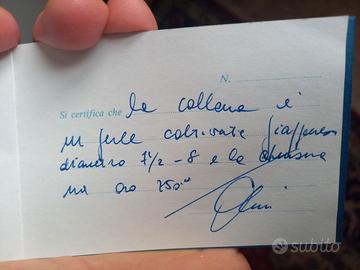 N.
Si certifica che la collana è
in perle coltivate giapponesi
diametro 7 1/2 - 8 e la chiusura
in oro 750‰
subito